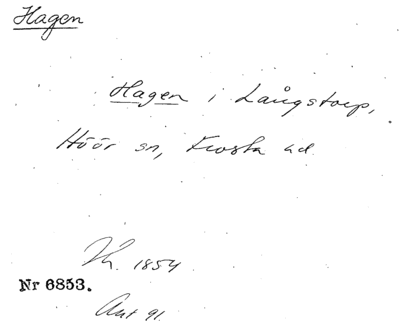 Hagen
Hagen i Långstorp,
Höör sn, Frosta hd
1854
Nr 6853.
Akt 91.